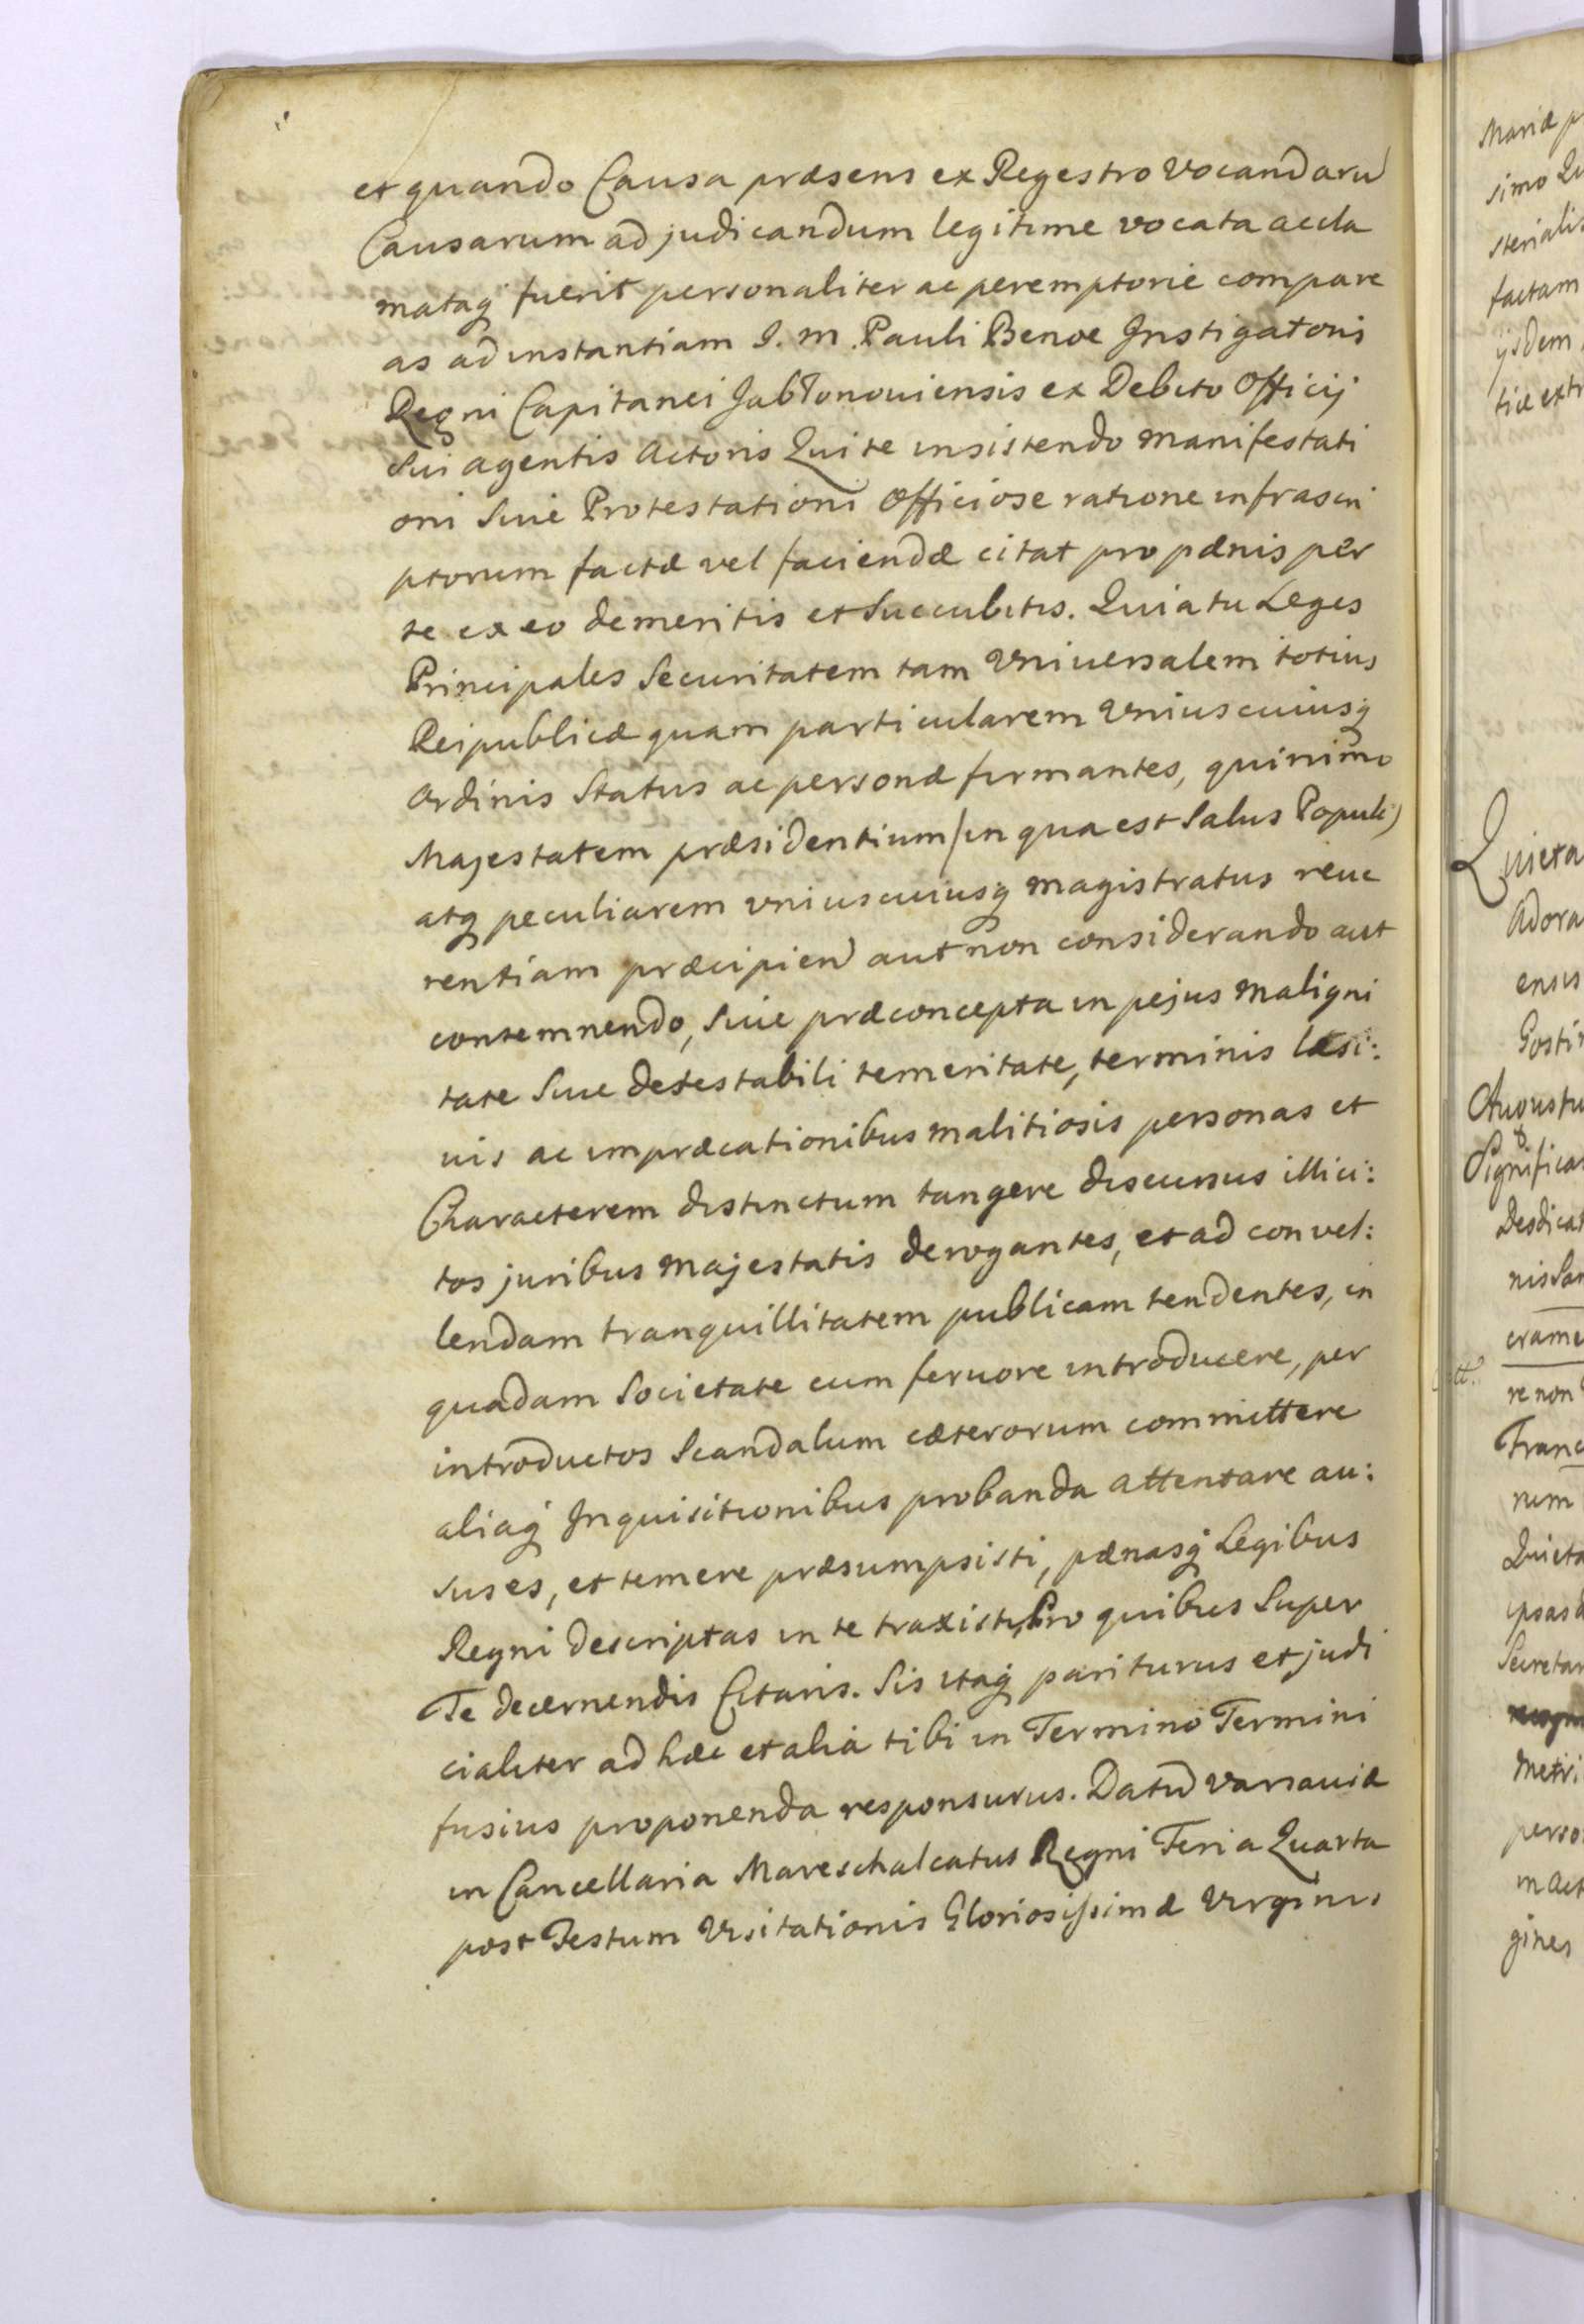 et quando Causa præsens ex Regestro Vocandaru
Causarum ad judicandum legitime vocata accla
mataq fuerit personaliter ac peremptorie compare
as ad instantiam I. M. Pauli Benoe Instigatoris
Regni Capitanei Jabłonoviensis ex Debito Officij
Sui agentis Actoris Qui te insistendo Manifestati
oni Siue Protestationi Officiose ratione infrascri
ptorum factæ vel faciendæ citat pro pænis per
te ex eo demeritis et Succubitis. Quia tu Leges
Principales Securitatem tam Vniuersalem totius
Reipublicæ quam particularem Vniuscuiusq
Ordinis Status ac personæ firmantes, quinimo
Majestatem præsidentium (in qua est Salus Populi)
atq peculiarem vniuscuiusq Magistratus reue
rentiam præcipien aut non considerando aut
contemnendo, Siue præconcepta in pejus Maligni
tate Siue detestabili temeritate, terminis læsi:
uis ac impræcationibus Malitiosis personas et
Characterem distinctum tangere discursus illici:
tos juribus Majestatis derogantes, et ad convel:
lendam tranquillitatem publicam tendentes, in
quadam Societate cum feruore introducere, per
introductos Scandalum cæterorum committere
aliaq Inquisitionibus probanda attentare au:
sus es, et temere præsumpsisti, pænasq Legibus
Regni descriptas in te traxisti, Pro quibus Super
Te decernendis Citaris. Sis itaq pariturus et judi
cialiter ad hæc et alia tibi in Termino Termini
fusius proponenda responsurus. Datu Varsauiæ
in Cancellaria Mareschalcatus Regni Feria Quarta
post Festum Visitationis Gloriosissimæ Virginis
Mariæ
simo
sterialis
factam
ijsdem
tiæ extr
Quieta
Adora
ensis
Gosti
Augustu
Significa
Desdicat
nis San
crame
re non
Franc
num
Quieta
ipsas
Secretar
Metri
perso
in Act
gines